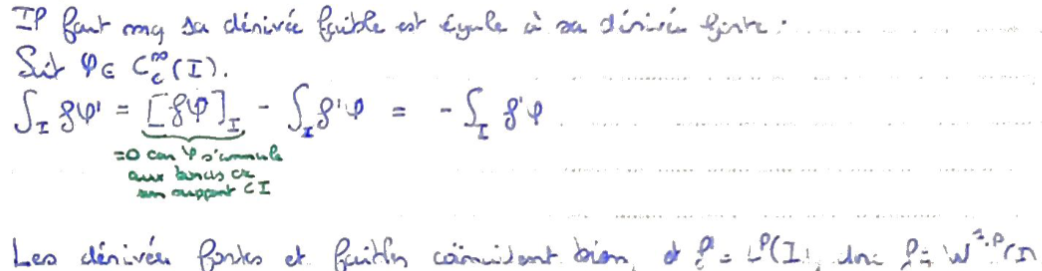 Il faut mq sa dérivée faible est égale à sa dérivée forte :
Soit φ ∈ C_c^∞(I).
∫_I fφ' = [fφ]_I - ∫_I f'φ = - ∫_I f'φ
=0 car φ s'annule
aux bords car
son support ⊂ I
Les dérivées fortes et faibles coïncident bien, et f' ∈ L^p(I), donc f ∈ W^{1,p}(I